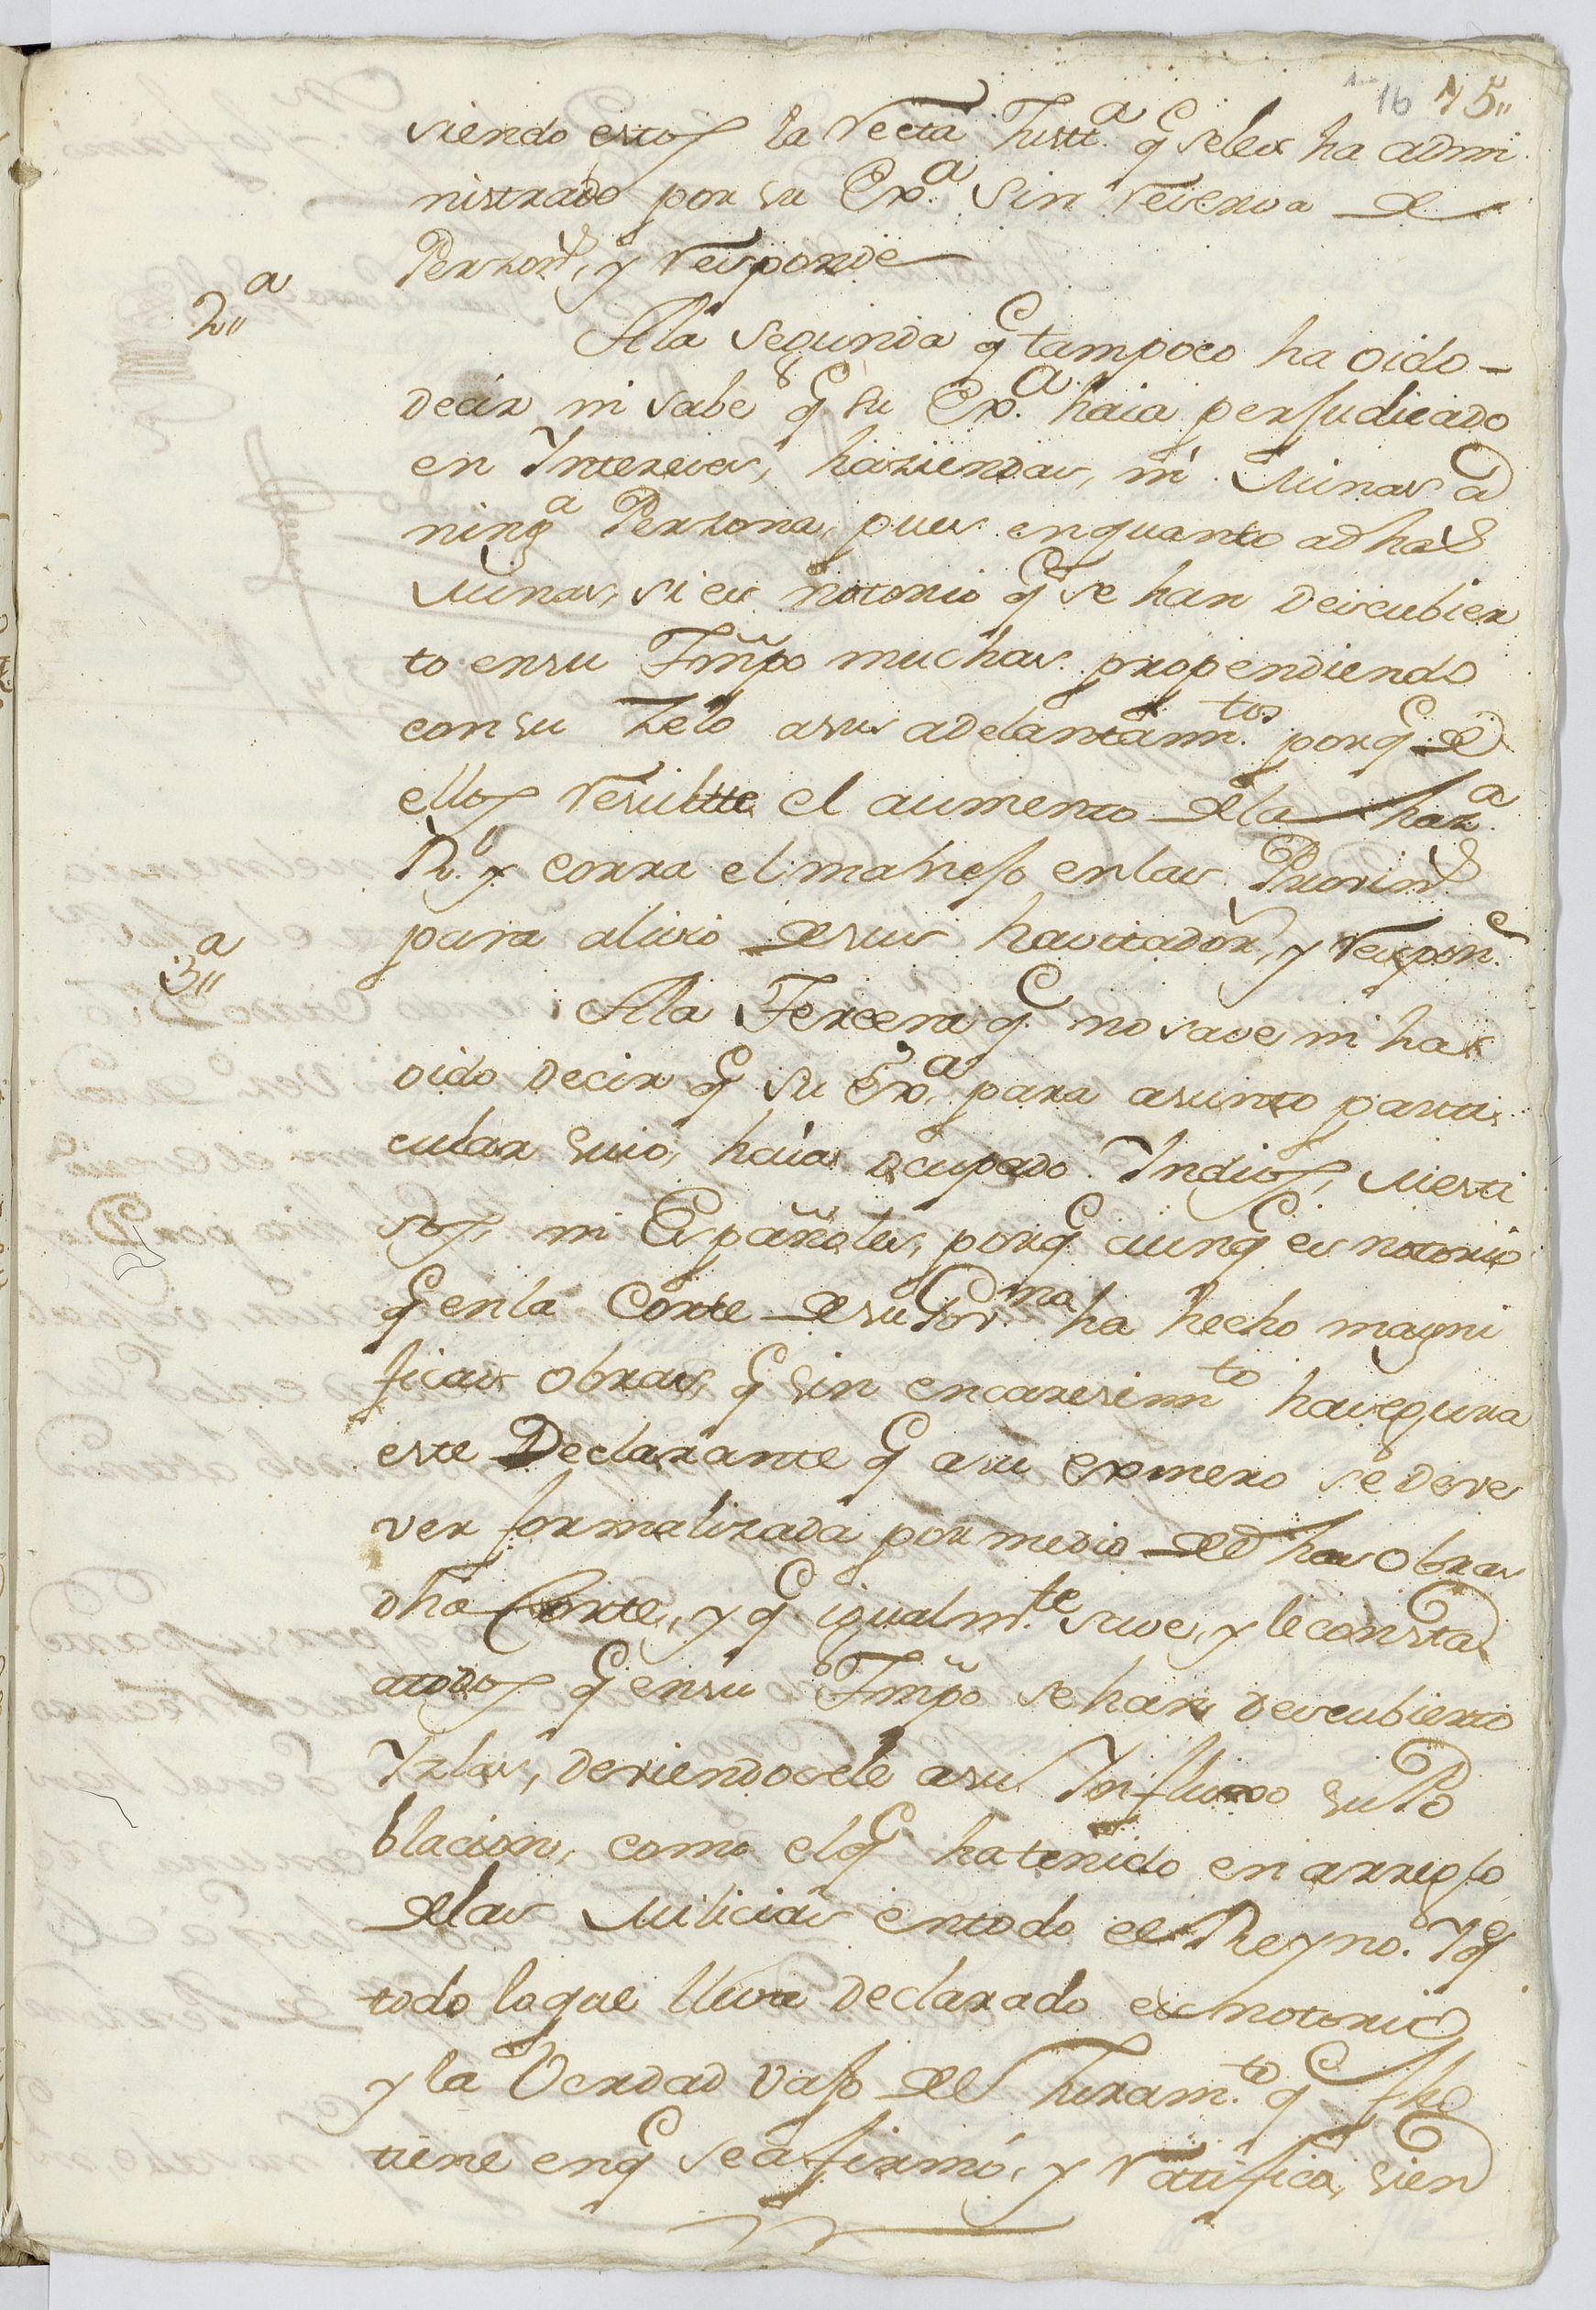 16 75,,
siendo estos la recta Justt.a q.e seles ha admi
nistrado por su Ex.a sin reserva de
Perzon.s, y responde
2,,a
Ala segunda q.e tampoco ha oido
decir ni sabe q.e su Ex.a haia perjudicado
en Intereses, haziendas, ni Minas a
ning.a Perzona, pues enquanto adhas
Minas, si es notorio q.e se han descubier
to ensu Tmpo muchas propendiendo
consu zelo asus adelantam.tos porq.e de
ellos resultte el aumento dela haz.a
R.l y corra el manejo enlas Provin.s
para alivio desus havitador.s, y respon.e
3,,a
Ala Tercera q.e no save ni ha
oido decir q.e su Ex.a para asunto parti
cular suio, haia ocupado Indios, Mesti
sos, ni Españoles, porq.e aunq.e es notorio
q.e enla Corte desu Gov.na ha hecho magni
ficas obras, q.e sin encaresim.to havegura
este Declarante q.e asu esmero se deve
ver formalizada por medio dedhas obras
dha Corte, y q.e igualm.te save, y le consta
atodos q.e ensu Tmpo se han descubierto
Yzlas, deviendosele asu Influxo su Po
blacion, como elq.e ha tenido en arreglo
delas Milicias entodo el Reyno. Y q.e
todo loque lleva declarado es notorio
y la Verdad vajo del Juram.to q.e fho
tiene enq.e se afirmó, y ratificó, sien